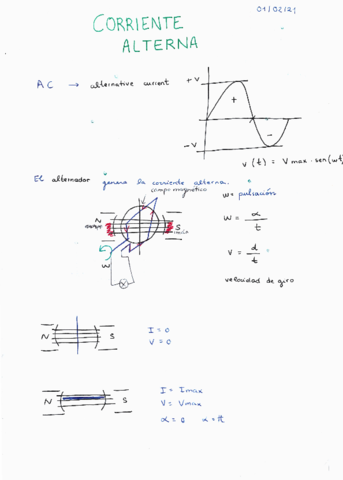 01/02/21
CORRIENTE
ALTERNA
AC → alternative current
+V
+
-
-V
V(t) = Vmax·sen(wt)
El alternador genera la corriente alterna.
campo magnético
w= pulsación
N
S
w
w = α/t
v = d/t
velocidad de giro
N
S
I = 0
V = 0
N
S
I = Imax
V = Vmax
α = 0 α = π